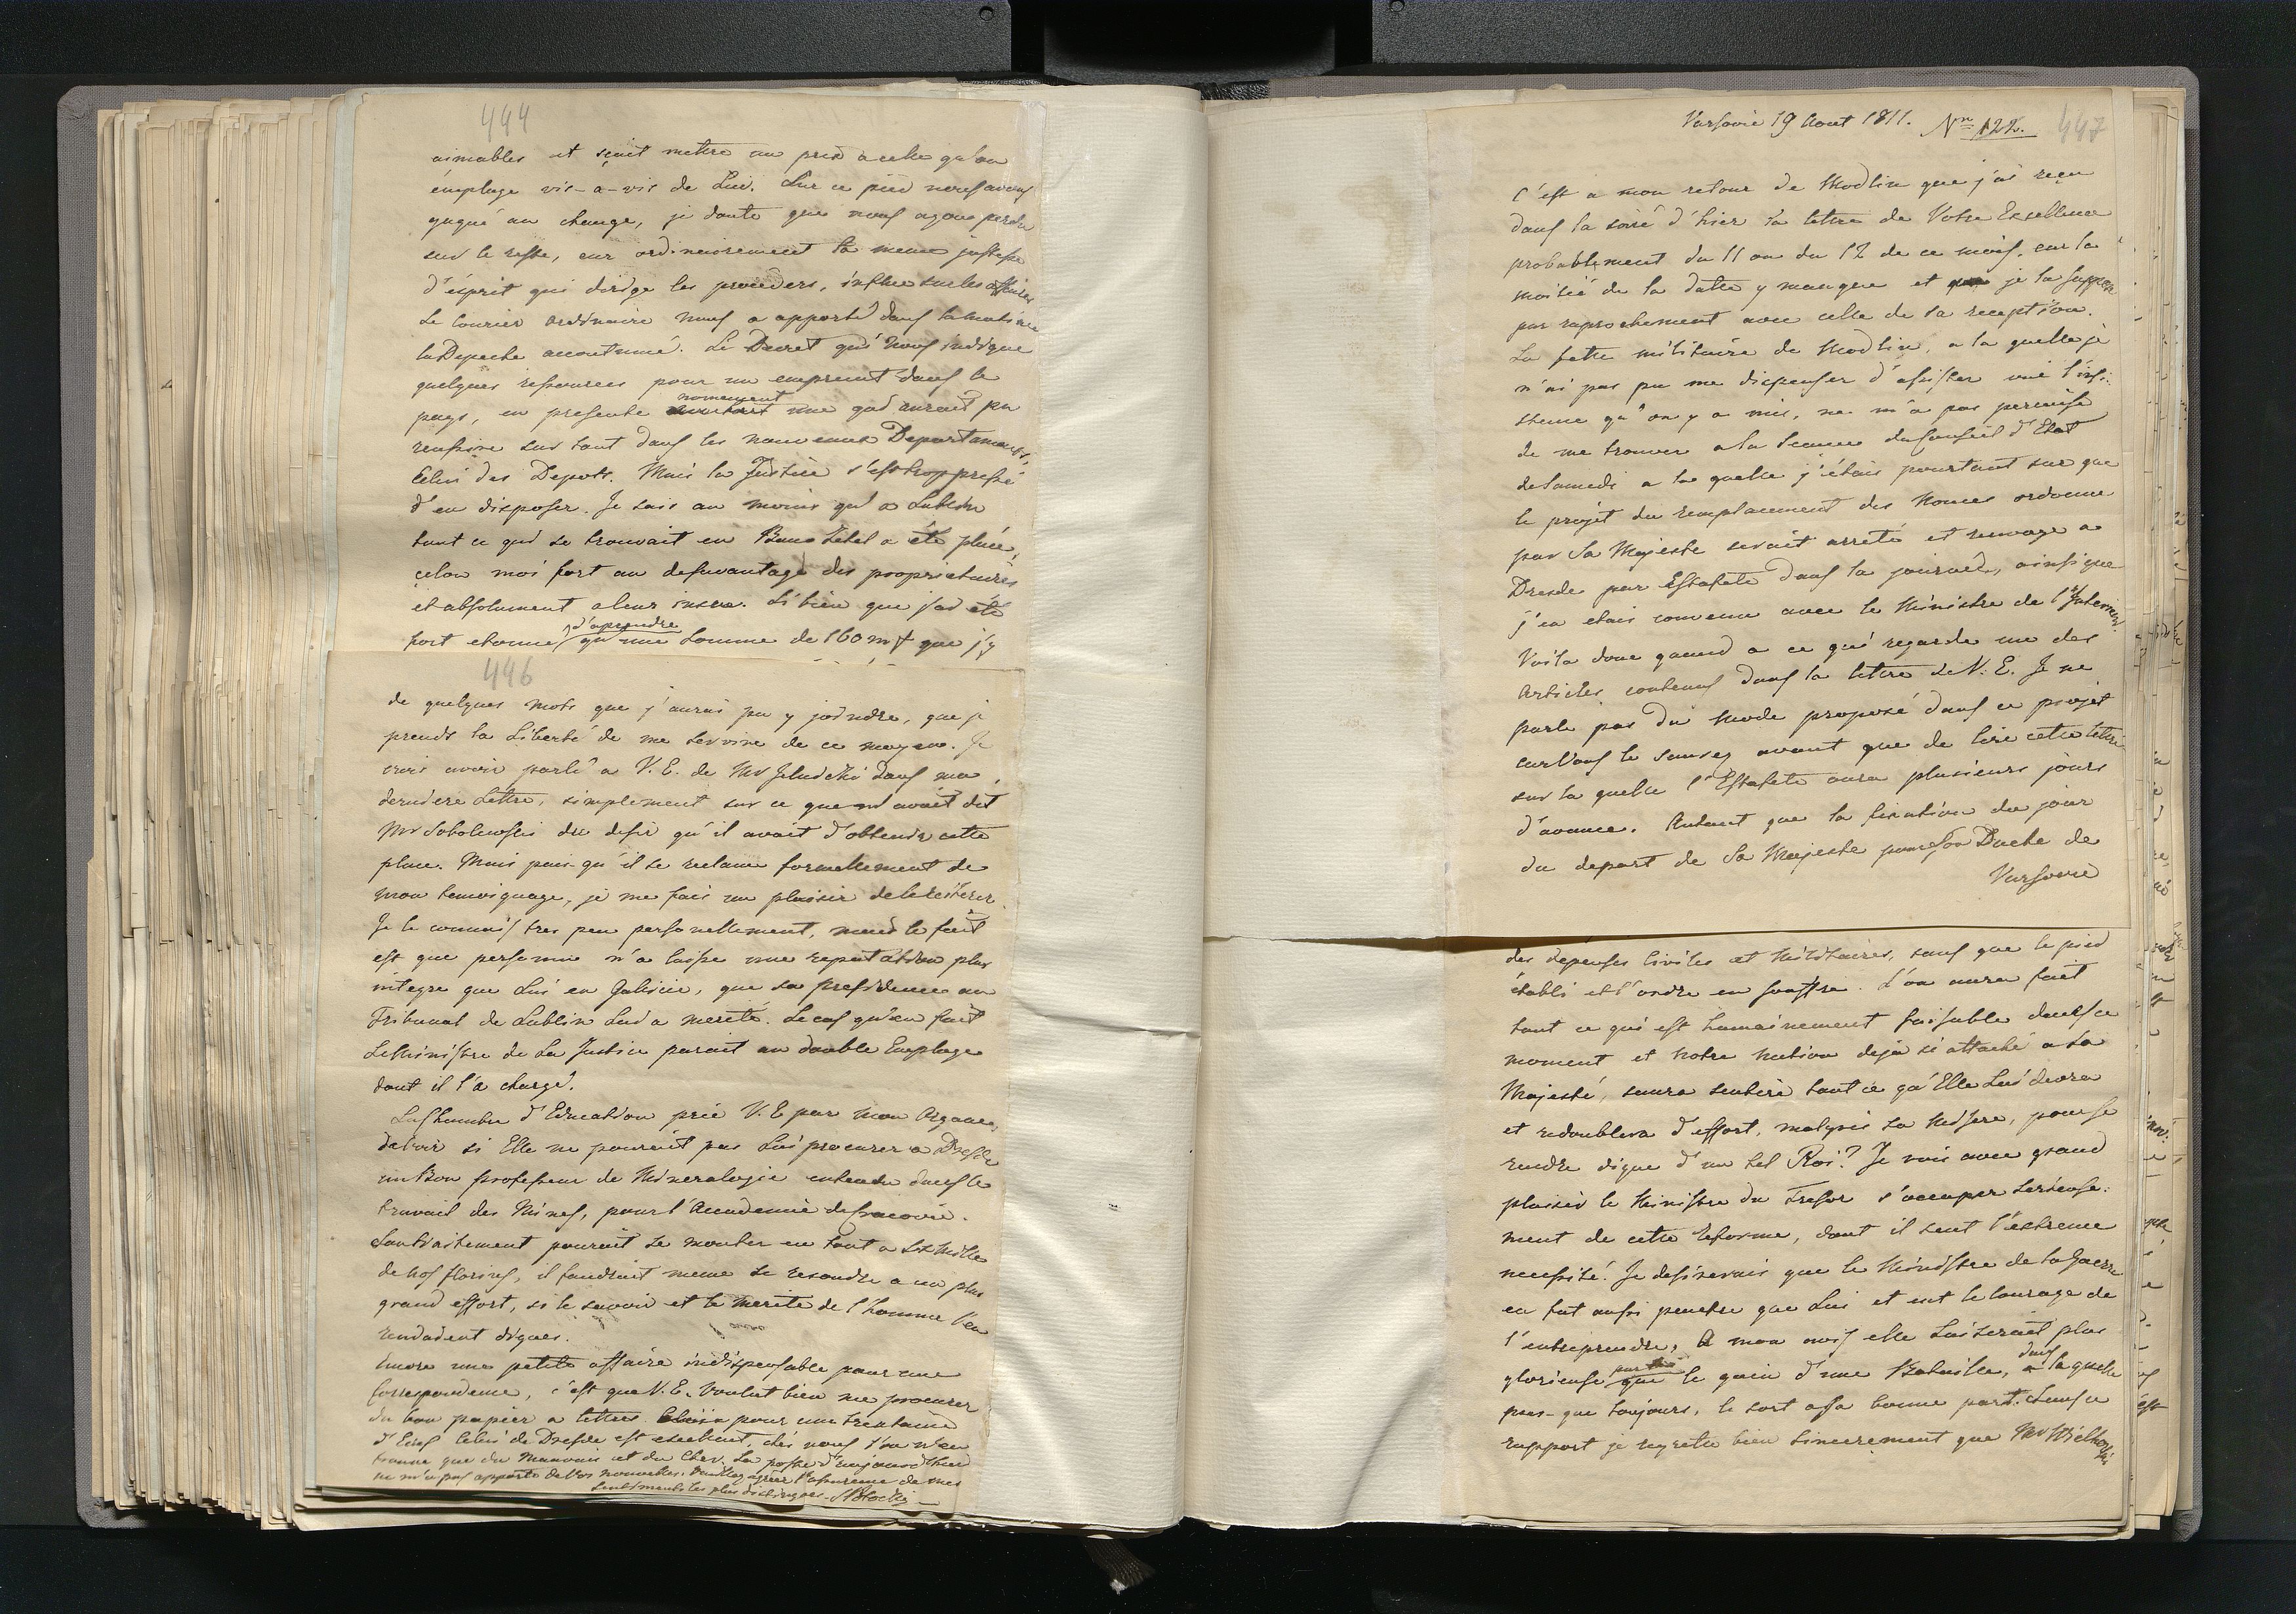 444
aimables et sçait mettre un prix a celle qu'on
employe vis-a-vis de Lui. Sur ce pied nous avons
gagné au change, je doute que nous ayons perdu
sur le reste, car ordinairement la meme justesse
d'esprit qui dirige les procéders, influe sur les affaires
Le Courier ordinaire nous a apporté dans la matinée
la Depeche accoutumé. Le Decret qui nous indique
quelques ressources pour un emprunt dans le
pays, en presente nomement une qui aurait pu
reussire sur tout dans les nouveaux Departamens,
Celui des Depots. Mais la Justice s'est trop pressé
d'en disposer. Je sais au moins qu'a Lublin
tout ce qui se trouvait en Banco Zetel a été placé,
çelon moi fort au desavantage des proprietaires
et absolument a leur insceu. Si bien que j'ai été
fort etonné d'aprendre qu'une Somme de 160 m # que j'y
446
de quelques mots que j'aurai pu y joindre, que je
prends la Liberté de me servire de ce moyen. Je
crois avoir parlé a V. E. de Mr dans ma
derniere Lettre, simplement sur ce que m'avait dit
Mr Sobolewski du desir qu'il avait d'obtenir cette
place. Mais puis-qu'il se reclame formellement de
mon temoignage, je me fais un plaisir de le reiterer.
Je le connois tres peu personellement, mais le fait
est que personne n'a laisse une reputation plus
integre que Lui en Galicie, que sa presidence au
Tribunal de Lublin Lui a merité. Le cas qu'en fait
Le Ministre de La Justice parait au double Employe
dont il l'a chargé.
La Chambre d'Education prie V. E par mon Organe,
de voir si Elle ne pourait pas Lui procurer a Dresde
un Bon professeur de Mineralogie entendu dans le
travail des Mines, pour l'Accademie de Cracovie.
Son traitement pourait se monter en tout a Six Mille
de nos florins, il faudrait meme se resoudre a un plus
grand effort, si le savoir et le merite de l'homme l'en
rendaient dignes.
Encore une petite affaire indispensable pour une
Correspondence, c'est que V. E. voulut bien me procurer
du bon papier a lettres pour une trentaine
d'Ecus Celui de Dresde est excellent, chés nous l'on n'en
trouve que du Mauvais et du Cher. La poste d'aujourd'hui
ne m'a pas apporté de Vos nouvelles. Veuillez agréer l'assurance de mes
Sentiments les plus distingués. SPotocki
Varsovie 19 Aout 1811. Nro 122. 447
C'est a mon retour de Modlin que j'ai reçu
dans la soiré d'hier la lettre de Votre Excellence
probablement du 11 ou du 12 de ce mois, car la
moitié de la datte y manque et je la suppose
par raprochement avec celle de sa reception.
La fette militaire de Modlin, a la quelle je
n'ai pas pu me dispenser d'assister vue l'insi-
stence qu'on y a mis, ne m'a pas permise
de me trouver a la Seance du Conseil d'Etat
de Samedi a la quelle j'étais pourtant sur que
le projét du remplacement des Nonces ordonné
par Sa Majesté serait arreté et renvoyé a
Dresde par Estafete dans la journée, ainsi que
j'en etais convenu avec le Ministre de l'Interieur.
Voila donc quand a ce qui regarde une des
Articles contenus dans la lettre de V. E. Je ne
parle pas du mode proposé dans ce projét
car Vous le saurez avant que de lire cette lettre
sur la quelle l'Estafete aura plusieurs jours
d'avance. Autant que la fixation du jour
du depart de Sa Majesté pour Son Duché de
Varsovie
des dépenses Civiles et Militaires, sans que le pied
établi et l'ordre en souffre. L'on aura fait
tout ce qui est humainement faisable dans ce
moment et notre Nation deja si attaché a Sa
Majesté, saura sentire tout ce qu'Elle Lui devra
et redoublera d'effort, malgrés sa Misere, pour se
rendre digne d'un tel Roi? Je vois avec grand
plaisir le Ministre du Tresor s'occuper serieuse-
ment de cette reforme, dont il sent l'extreme
necessité. Je desirerais que le Ministre de la Guerre
en fut aussi penetre que Lui et eut le Courage de
l'entreprendre, A mon avis elle Lui serait plus
glorieuse que le gain d'une Bataille, dans la quelle
pres-que toujours, le sort a sa bonne part. Dans ce
rapport je regrette bien sincerement que Mr Wielhorski